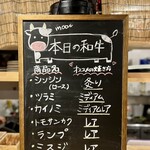 mooo
本日の和牛
商品名 オススメの焼き方
・シンシン 炙り
(ロース)
・ツラミ ミディアム
・カイノミ ミディアムレア
・トモサンカク レア
・ランプ レア
・ミスジ レア